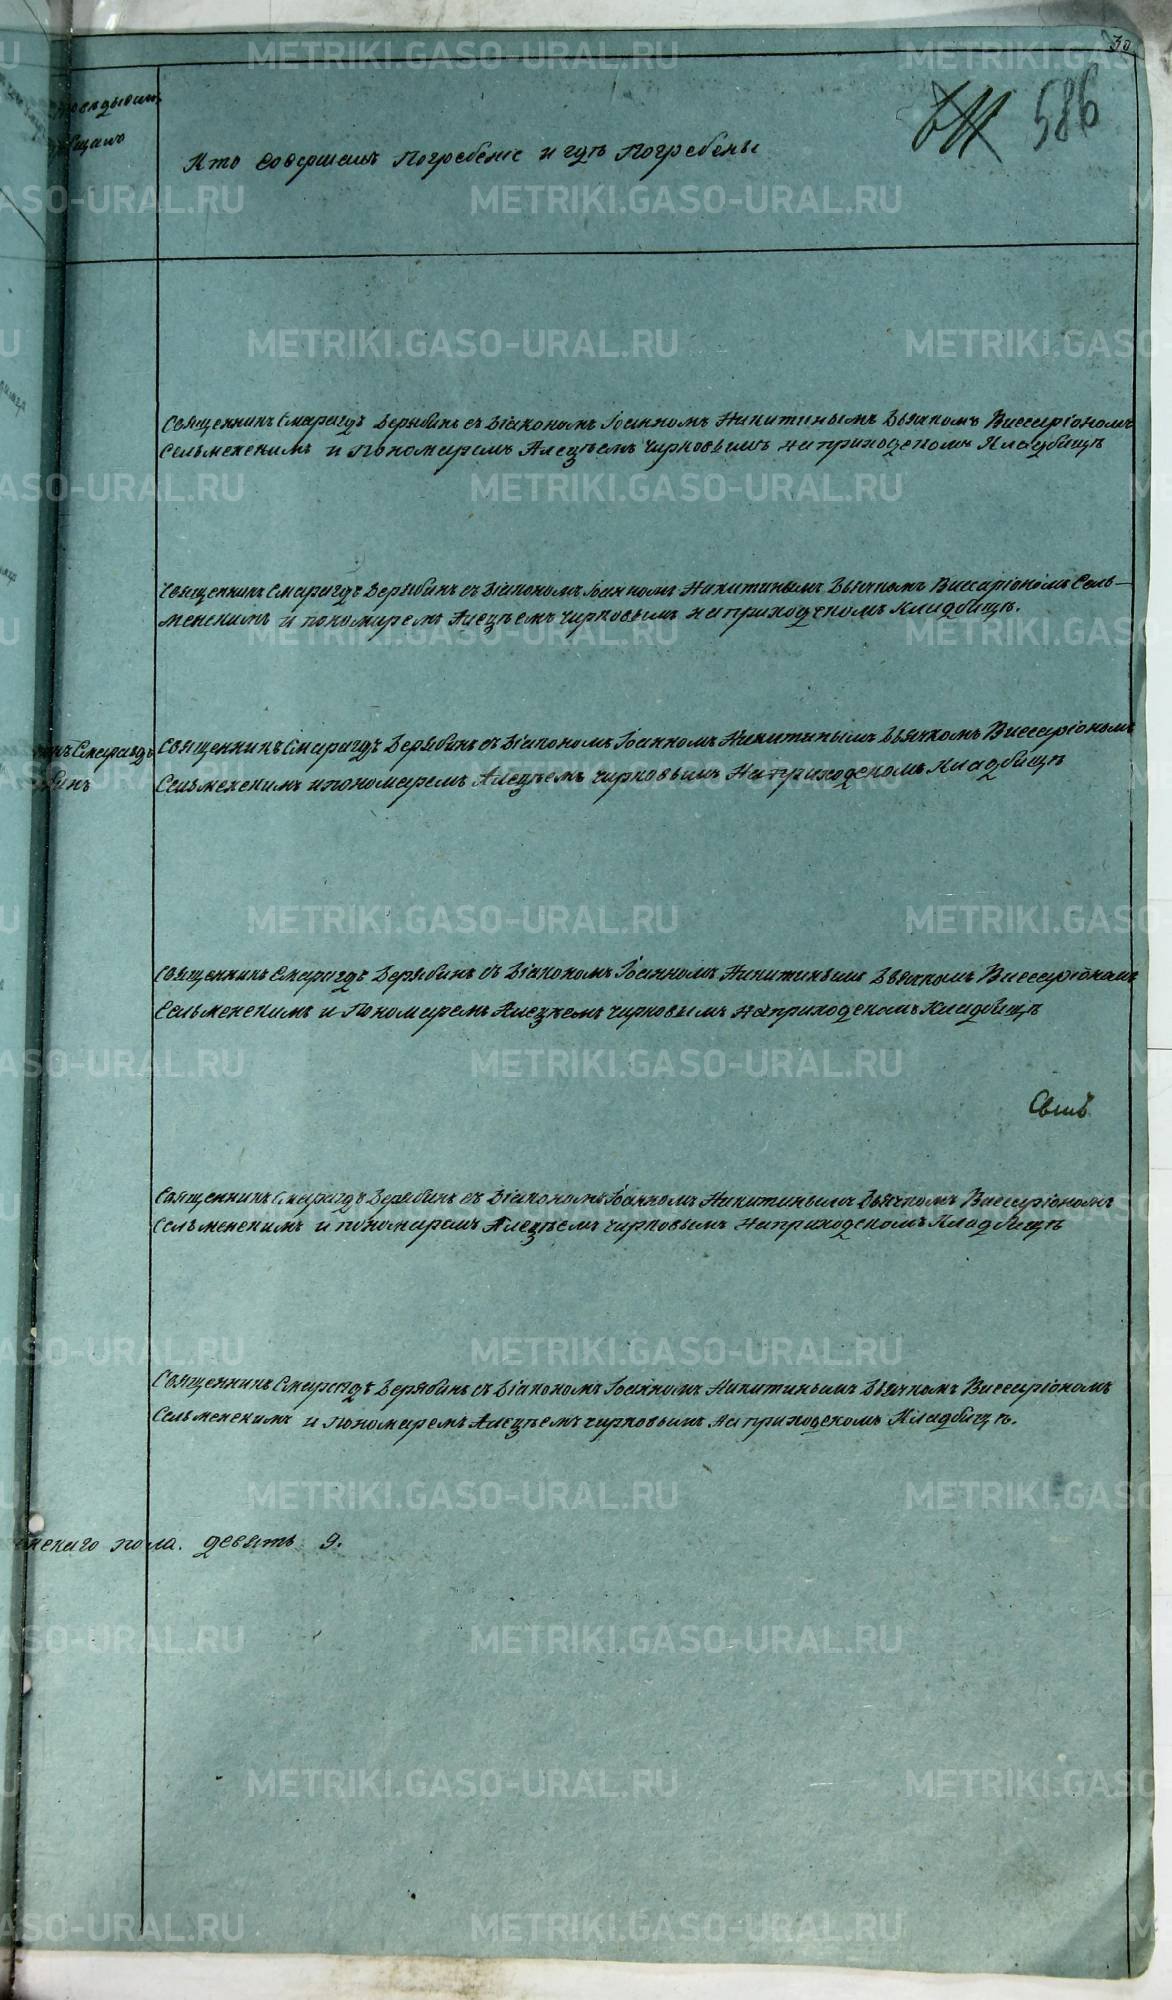 30
586
Кто совершалъ Погребеніе и гдѣ Погребены
Священникъ Смарагдъ Дерябинъ съ Діакономъ Іоанномъ Никитинымъ Дьячкомъ Виссаріономъ
Сельменскимъ и Пономаремъ Алеѯѣемъ Чирковымъ на приходскомъ Кладбищѣ
Священникъ Смарагдъ Дерябинъ съ Діакономъ Іоанномъ Никитинымъ Дьячкомъ Виссаріономъ Сель-
менскимъ и пономаремъ Алеѯѣемъ Чирковымъ на приходскомъ Кладбищѣ.
Смарагдъ
Священникъ Смарагдъ Дерябинъ съ Діакономъ Іоанномъ Никитинымъ Дьячкомъ Виссаріономъ
Сельменскимъ и пономаремъ Алеѯѣемъ Чирковымъ На приходскомъ Кладбищѣ
Священникъ Смарагдъ Дерябинъ съ Діакономъ Іоанномъ Никитинымъ Дьячкомъ Виссаріономъ
Сельменскимъ и Пономаремъ Алеѯѣемъ Чирковымъ на приходскомъ Кладбищѣ
Священникъ Смарагдъ Дерябинъ съ Діакономъ Іоанномъ Никитинымъ Дьячкомъ Виссаріономъ
Сельменскимъ и пономаремъ Алеѯѣемъ Чирковымъ на приходскомъ Кладбищѣ
Священникъ Смарагдъ Дерябинъ съ Діакономъ Іоанномъ Никитинымъ Дьячкомъ Виссаріономъ
Сельменскимъ и Пономаремъ Алеѯѣемъ Чирковымъ на приходскомъ Кладбищѣ.
пола. девять 9.
METRIKI.GASO-URAL.RU